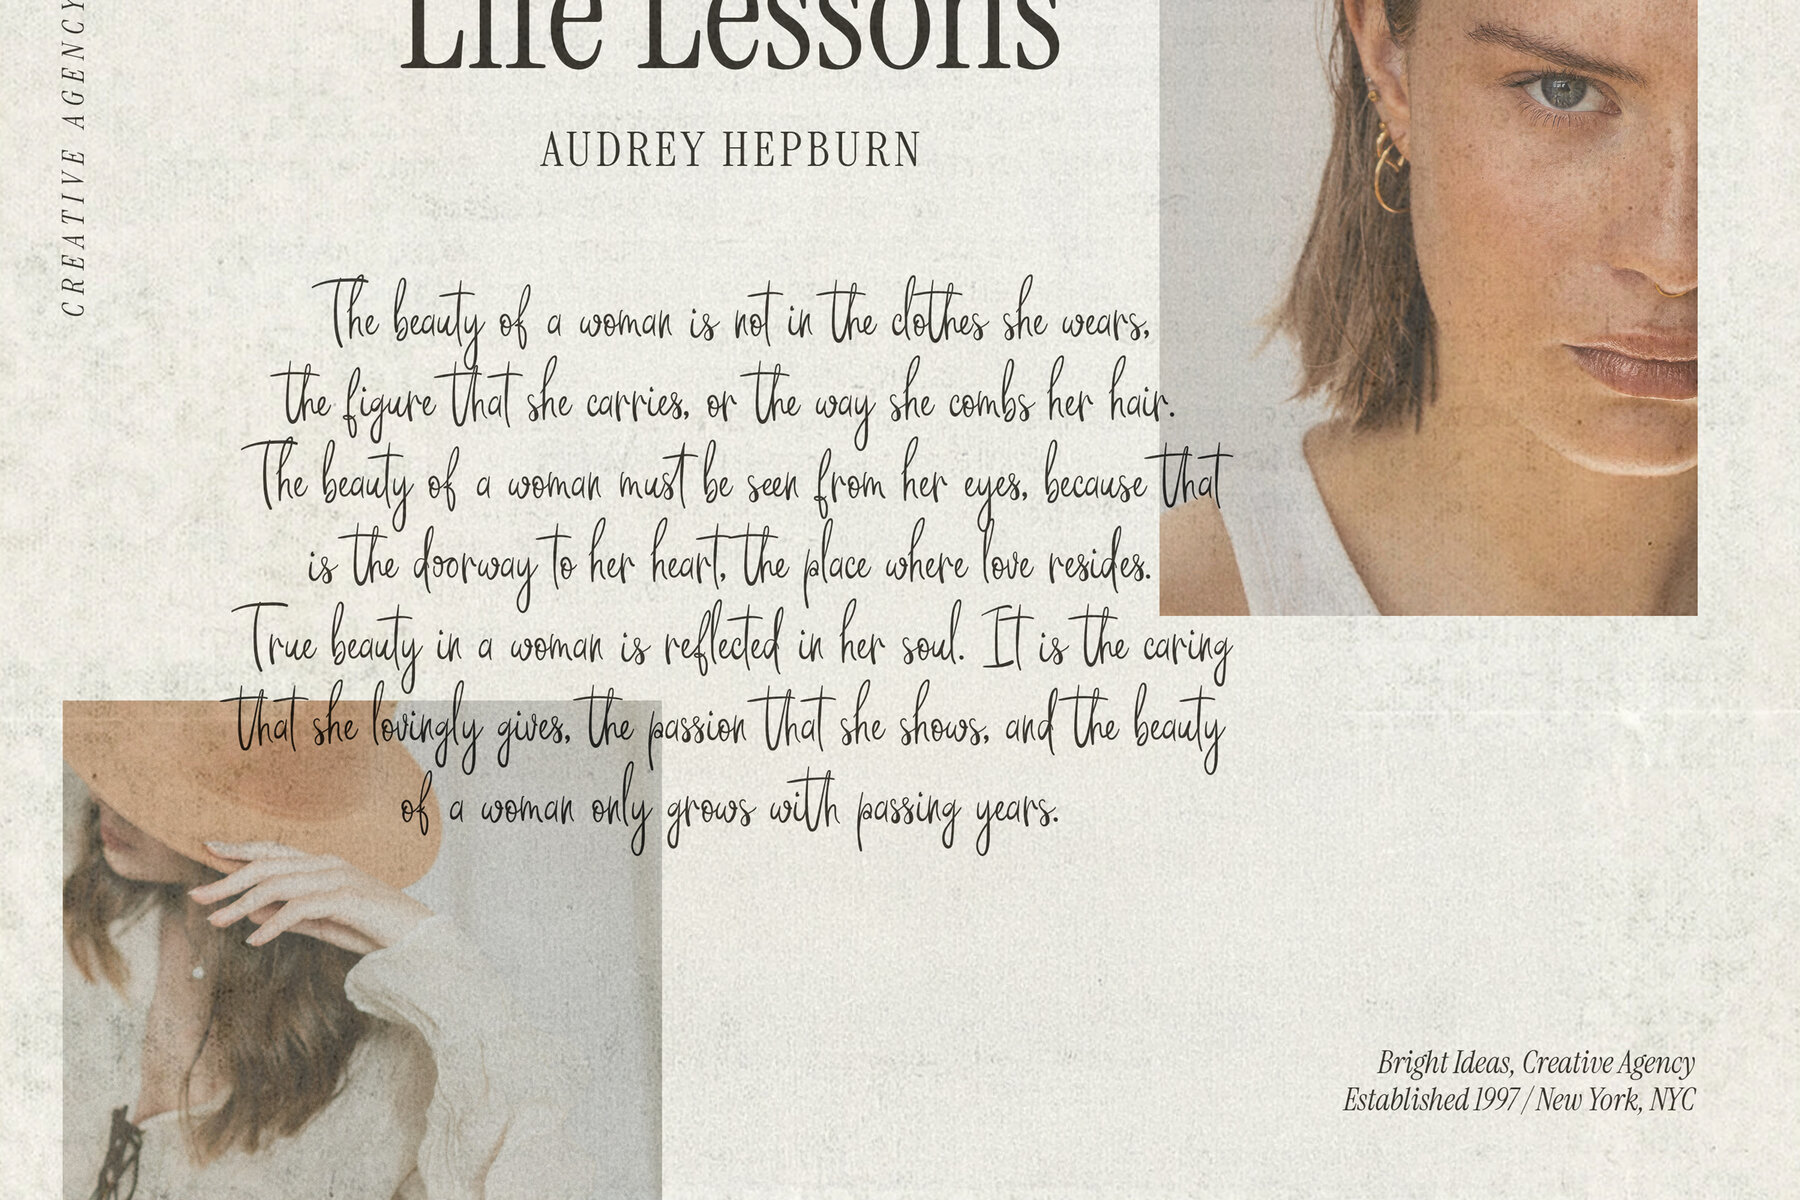 CREATIVE AGENCY
Life Lessons
AUDREY HEPBURN
The beauty of a woman is not in the clothes she wears,
the figure that she carries, or the way she combs her hair.
The beauty of a woman must be seen from her eyes, because that
is the doorway to her heart, the place where love resides.
True beauty in a woman is reflected in her soul. It is the caring
that she lovingly gives, the passion that she shows, and the beauty
of a woman only grows with passing years.
Bright Ideas, Creative Agency
Established 1997 / New York, NYC